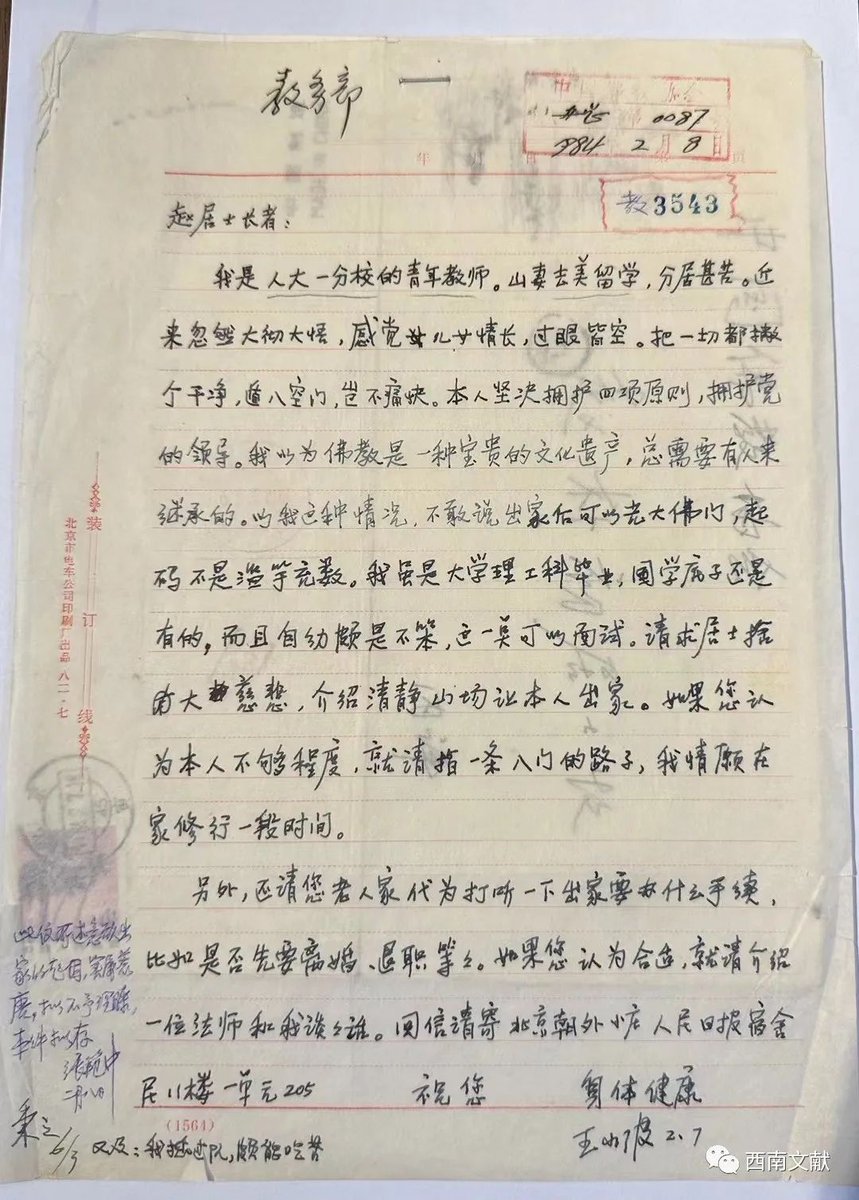 教务部
0087
1984 2月8日
教3543
赵居士长者:
我是人大一分校的青年教师。山妻去美留学,分居甚苦。近
来忽然大彻大悟,感觉儿女情长,过眼皆空。把一切都撇
个干净,遁入空门,岂不痛快。本人坚决拥护四项原则,拥护党
的领导。我以为佛教是一种宝贵的文化遗产,总需要有人来
继承的。以我这种情况,不敢说出家后可以光大佛门,起
码不是滥竽充数。我虽是大学理工科毕业,国学底子还是
有的,而且自幼颇是不笨,这一点可以面试。请求居士施
大慈悲,介绍清静山场让本人出家。如果您认
为本人不够程度,就请指一条入门的路子,我情愿在
家修行一段时间。
另外,还请您老人家代为打听一下出家要办什么手续,
比如是否先要离婚、退职等々。如果您认为合适,就请介绍
一位法师和我谈々话。回信请寄北京朝外小庄人民日报宿舍
11楼一单元205 祝您 身体健康
王小波 2.7
又及:我插过队,颇能吃苦
(1564)
此信所述急欲出
家的起因,实属荒
唐,拟不予理睬,
事件拟存
二月八日
6/3
装订线
北京市电车公司印刷厂出品 八二·七
西南文献